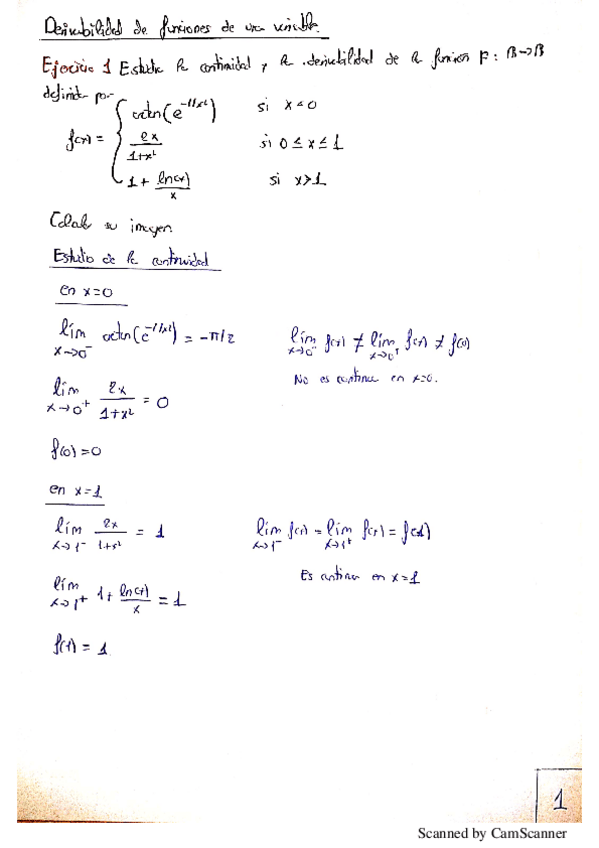 Derivabilidad de funciones de una variable.
Ejercicio 1 Estudia la continuidad y la derivabilidad de la función F: R→R
definida por
f(x) = { arctan(e^{-1/x²}) si x<0
2x/(1+x²) si 0≤x≤1
1 + ln(x)/x si x>1
Calcula su imagen
Estudio de la continuidad
en x=0
lím x→0⁻ arctan(e^{-1/x²}) = -π/2
lím x→0⁻ f(x) ≠ lím x→0⁺ f(x) ≠ f(0)
lím x→0⁺ 2x/(1+x²) = 0
No es continua en x=0.
f(0)=0
en x=1
lím x→1⁻ 2x/(1+x²) = 1
lím x→1⁻ f(x) = lím x→1⁺ f(x) = f(1)
lím x→1⁺ 1+ ln(x)/x = 1
Es continua en x=1
f(1) = 1
1
Scanned by CamScanner